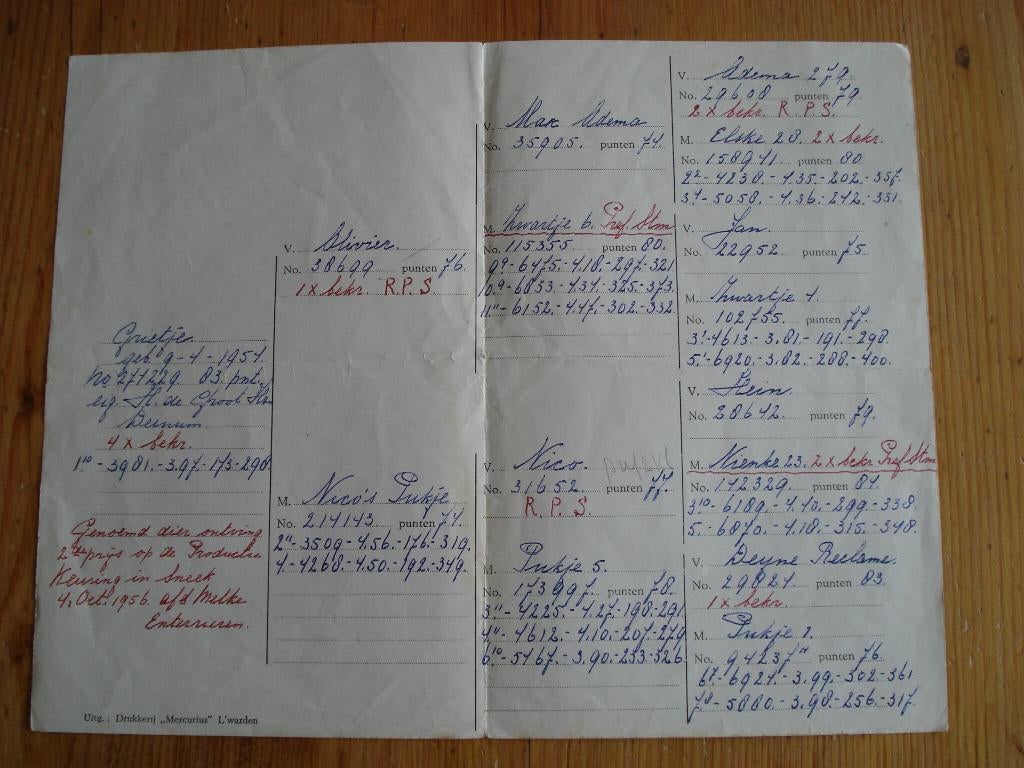 Grietje.
geb. 9-4-1954.
No 271229. 83. pnt.
eig. H. de Groot
Deinum.
4 x bekr.
1¹⁰ - 3981. - 3.97. - 173 - 298.
Genoemd dier ontving
2de prijs op de Productie
Keuring in Sneek
4. Oct. 1956. afd Melke
Uitg.: Drukkerij „Mercurius" L'warden
V. Olivier.
No. 38699 punten 76.
1 x bekr. R.P.S.
M. Nico's Pukje
No. 214143. punten 74.
2¹¹ - 3509. - 4.56. - 176. - 319.
4. - 4268. - 4.50. - 192. - 349.
V. Max Adema
No. 35905. punten 74.
M. Zwartje 6. Pref. Stm
No. 115355 punten 80.
9⁹ - 6475. - 4.18. - 297. - 321
10.⁹ - 6853. - 4.34. - 325. - 373.
11¹¹ - 6152. - 4.47. - 302. - 332.
V. Nico.
No. 31652. punten 77.
R.P.S.
M. Pukje 5.
No. 173997. punten 78.
3¹¹ - 4225. - 4.27. - 198. - 291
4¹¹ - 4612. - 4.10. - 207. - 279
6¹⁰ - 5467. - 3.90. - 233. - 326.
V. Adema 279.
No. 29608 punten 79.
2 x bekr. R.P.S.
M. Elske 28. 2 x bekr.
No. 158941. punten 80
2² - 4238. - 4.35. - 202. - 357.
3⁴ - 5058. - 4.36. - 242. - 331.
V. Jan.
No. 22952 punten 75.
M. Zwartje 4.
No. 102755. punten 77.
3¹ - 4613 - 3.81. - 191. - 298.
5¹ - 6920. - 3.82. - 288. - 400.
V. Hein.
No. 28642. punten 79.
M. Nienke 23. 2 x bekr. Pref Stm
No. 142329. punten 81.
3¹⁰ - 6189. - 4.40. - 299. - 338.
5. - 6870. - 4.18. - 315. - 348.
V. Deyne Reclame.
No. 29824 punten 83.
1 x bekr.
M. Pukje 1.
No. 94237 H punten 76.
6⁷ - 6924. - 3.99. - 302. - 361
7.⁸ - 5880. - 3.98. - 256. - 317.